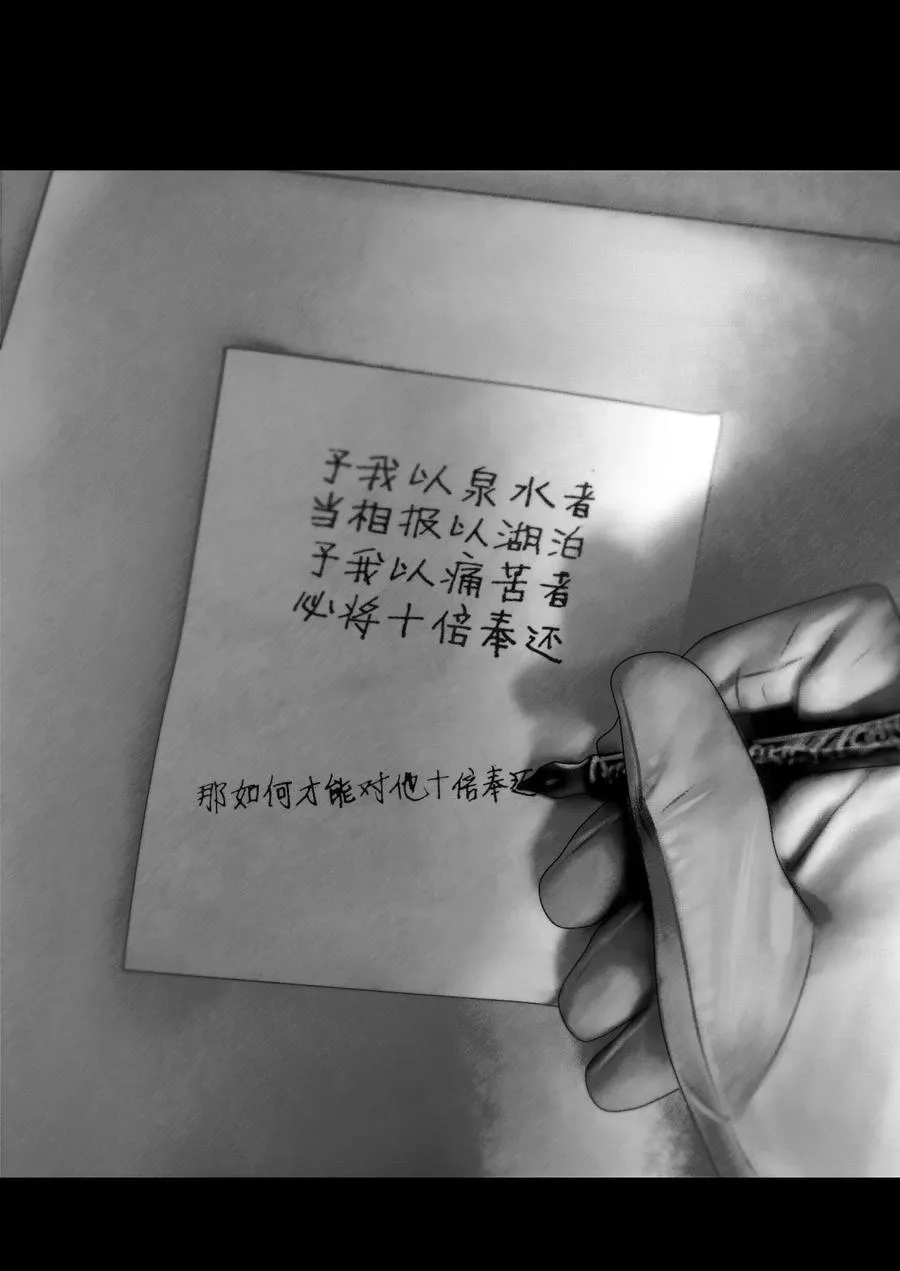 予我以泉水者
当相报以湖泊
予我以痛苦者
必将十倍奉还
那如何才能对他十倍奉还